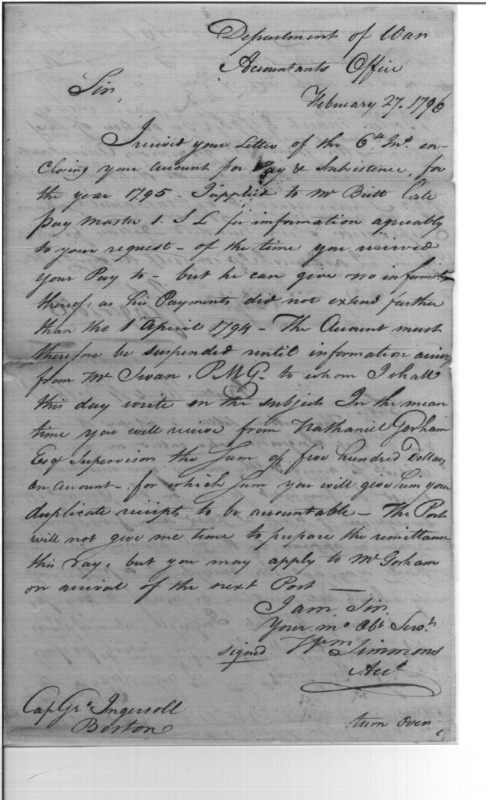 Department of War
Accountants Office
February 27. 1796
Sir,
I received your Letter of the 6th Inst. en-
closing your account for Pay & Subsistence, for
the year 1795 - I applied to Mr Britt late
Pay Master 1. S L for information agreeably
to your request - of the time you received
your Pay to - but he can give no information
thereof, as his Payments did not extend further
than the 1 April 1794 - The Account must
therefore be suspended until information arrives
from Mr Swan. P.M.G. to whom I shall
this day write on the subject In the mean
time you will receive from Nathaniel Gorham
Esqr Supervisor the Sum of five hundred Dollars
on account - for which sum you will give him your
duplicate receipts to be accountable - The Post
will not give me time to prepare the remittance
this day, but you may apply to Mr Gorham
on arrival of the next Post
I am Sir.
Your mo Obt Servt
signed Wm Simmons
Acct
Cap Go Ingersoll
Boston
turn over